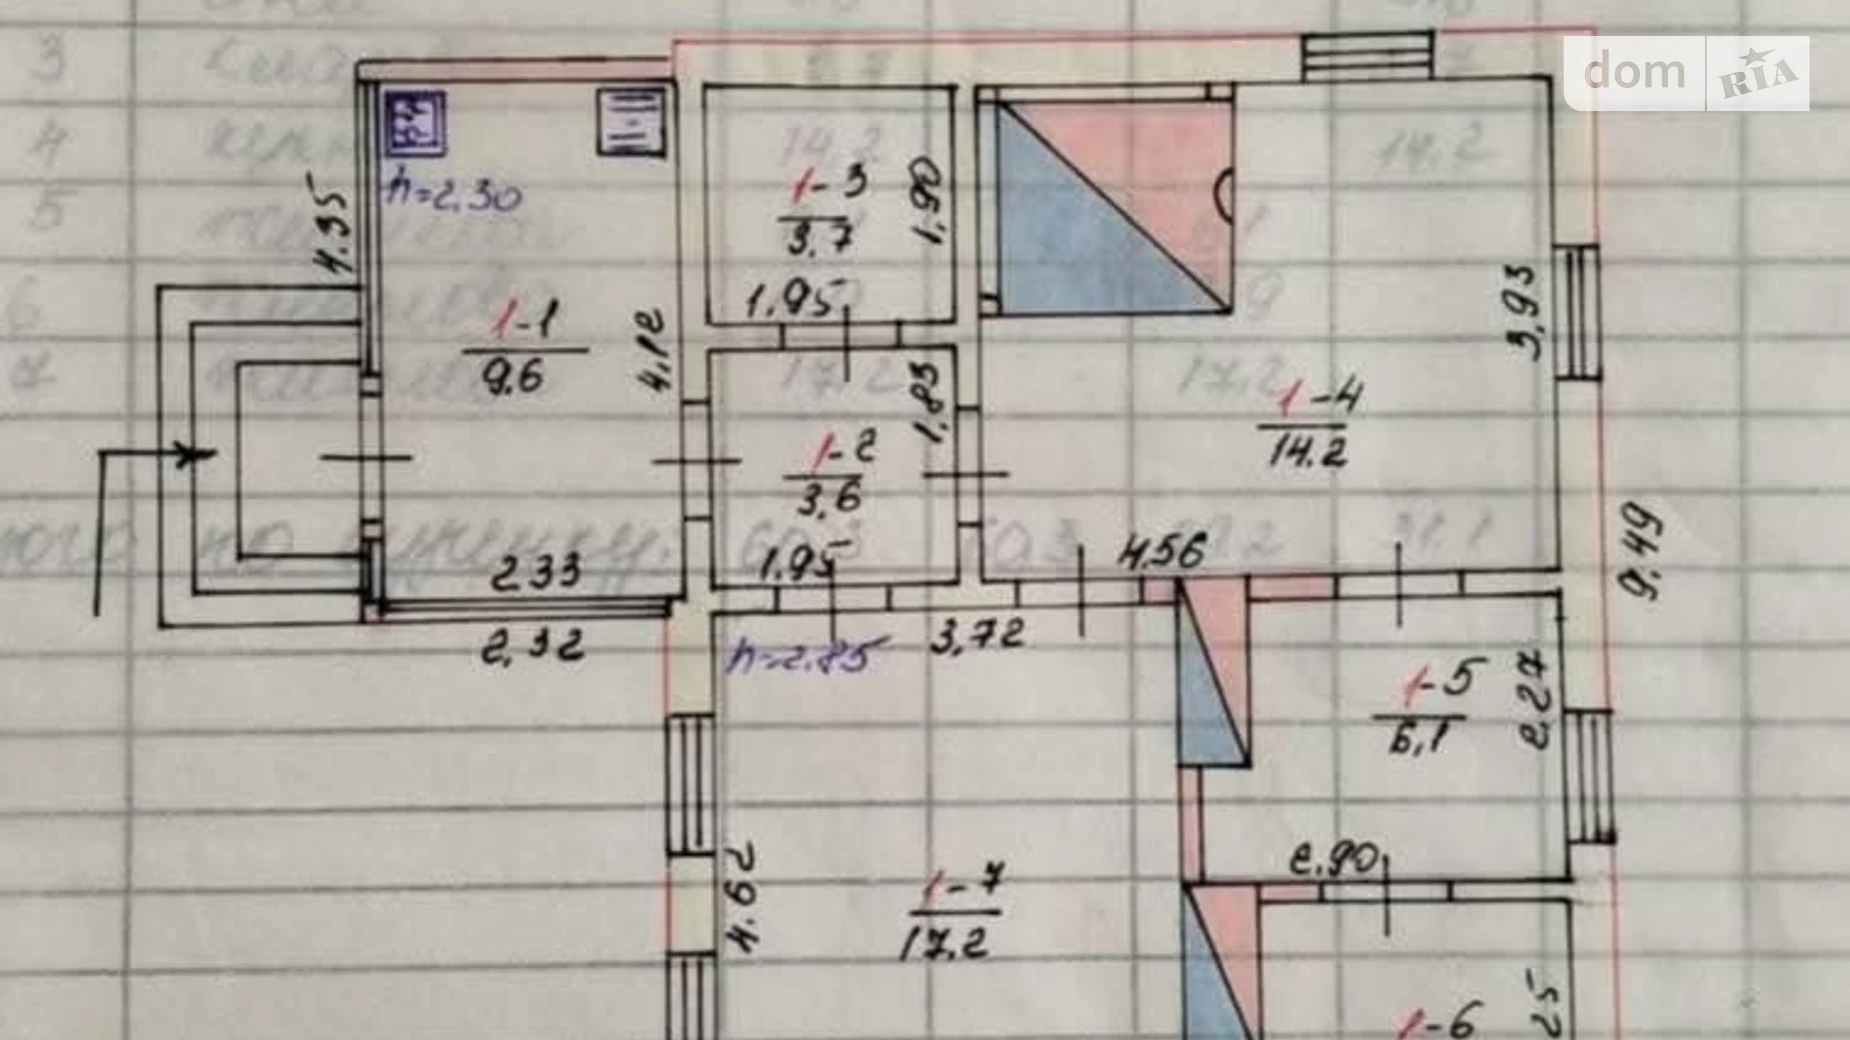 dom RIA
h=2.30
4.35
1-1
9.6
4.12
2.33
2.32
1-3
3.7
1.90
1.95
1-2
3.6
1.83
1.95
14.2
1-4
14.2
3.93
4.56
9.49
h=2.85
3.72
1-5
6.1
2.27
2.90
1-7
17.2
4.62
1-6
25
3
4
5
6
7
14.2
17.2
17.2